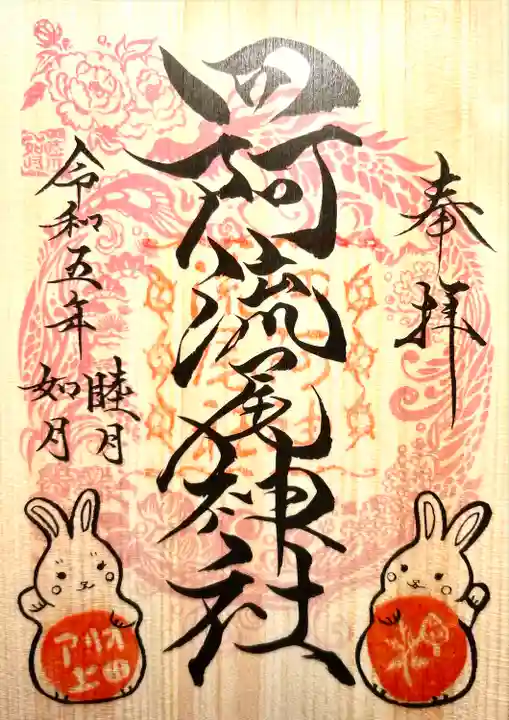 奉拝
阿流尾神社
令和五年
睦月
如月
アリオ
上田